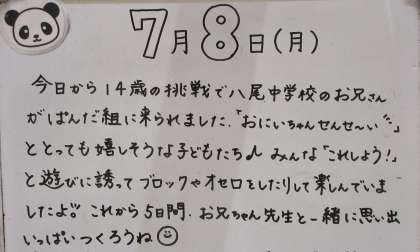 7月8日(月)
今日から14歳の挑戦で八尾中学校のお兄さん
がぱんだ組に来られました。「おにいちゃんせんせ〜い」
ととっても嬉しそうな子どもたち♪ みんな「これしよう!」
と遊びに誘ってブロックやオセロをしたりして楽しんでいま
したよ。これから5日間、お兄ちゃん先生と一緒に思い出
いっぱいつくろうね☺